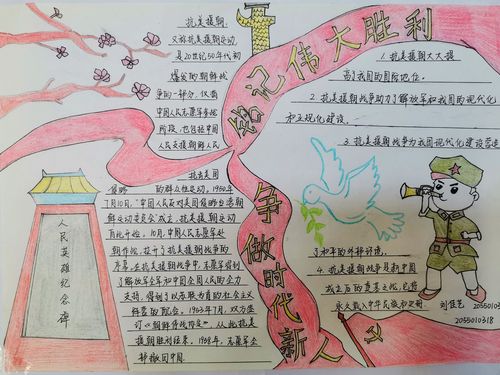 铭记伟大胜利
争做时代新人
抗美援朝,
又称抗美援朝运动,
是20世纪50年代初
爆发的朝鲜战
争的一部分,仅指
中国人民志愿军参战
阶段,也包括中国
人民支援朝鲜人民
抗击美国
侵略的群众性运动。1950年
7月10日,“中国人民反对美国侵略台湾朝
鲜运动委员会”成立,抗美援朝运动
自此开始。10月,中国人民志愿军赴
朝作战,拉开了抗美援朝战争的
序幕。在抗美援朝战争中,志愿军得到
了解放军全军和中国全国人民的全力
支持,得到了以苏联为首的社会主义
阵营的配合。1953年7月,双方签
订《朝鲜停战协定》,从此抗美
援朝胜利结束。1958年,志愿军全
部撤回中国。
人民英雄纪念碑
1.抗美援朝大大提
高了我国的国际地位。
2.抗美援朝战争助力了解放军和我国的现代化
和正规化建设。
3.抗美援朝战争为我国现代化建设营造
了和平的外部环境。
4.抗美援朝战争是新中国
成立之后的
永久载入中华民族和
2055010318